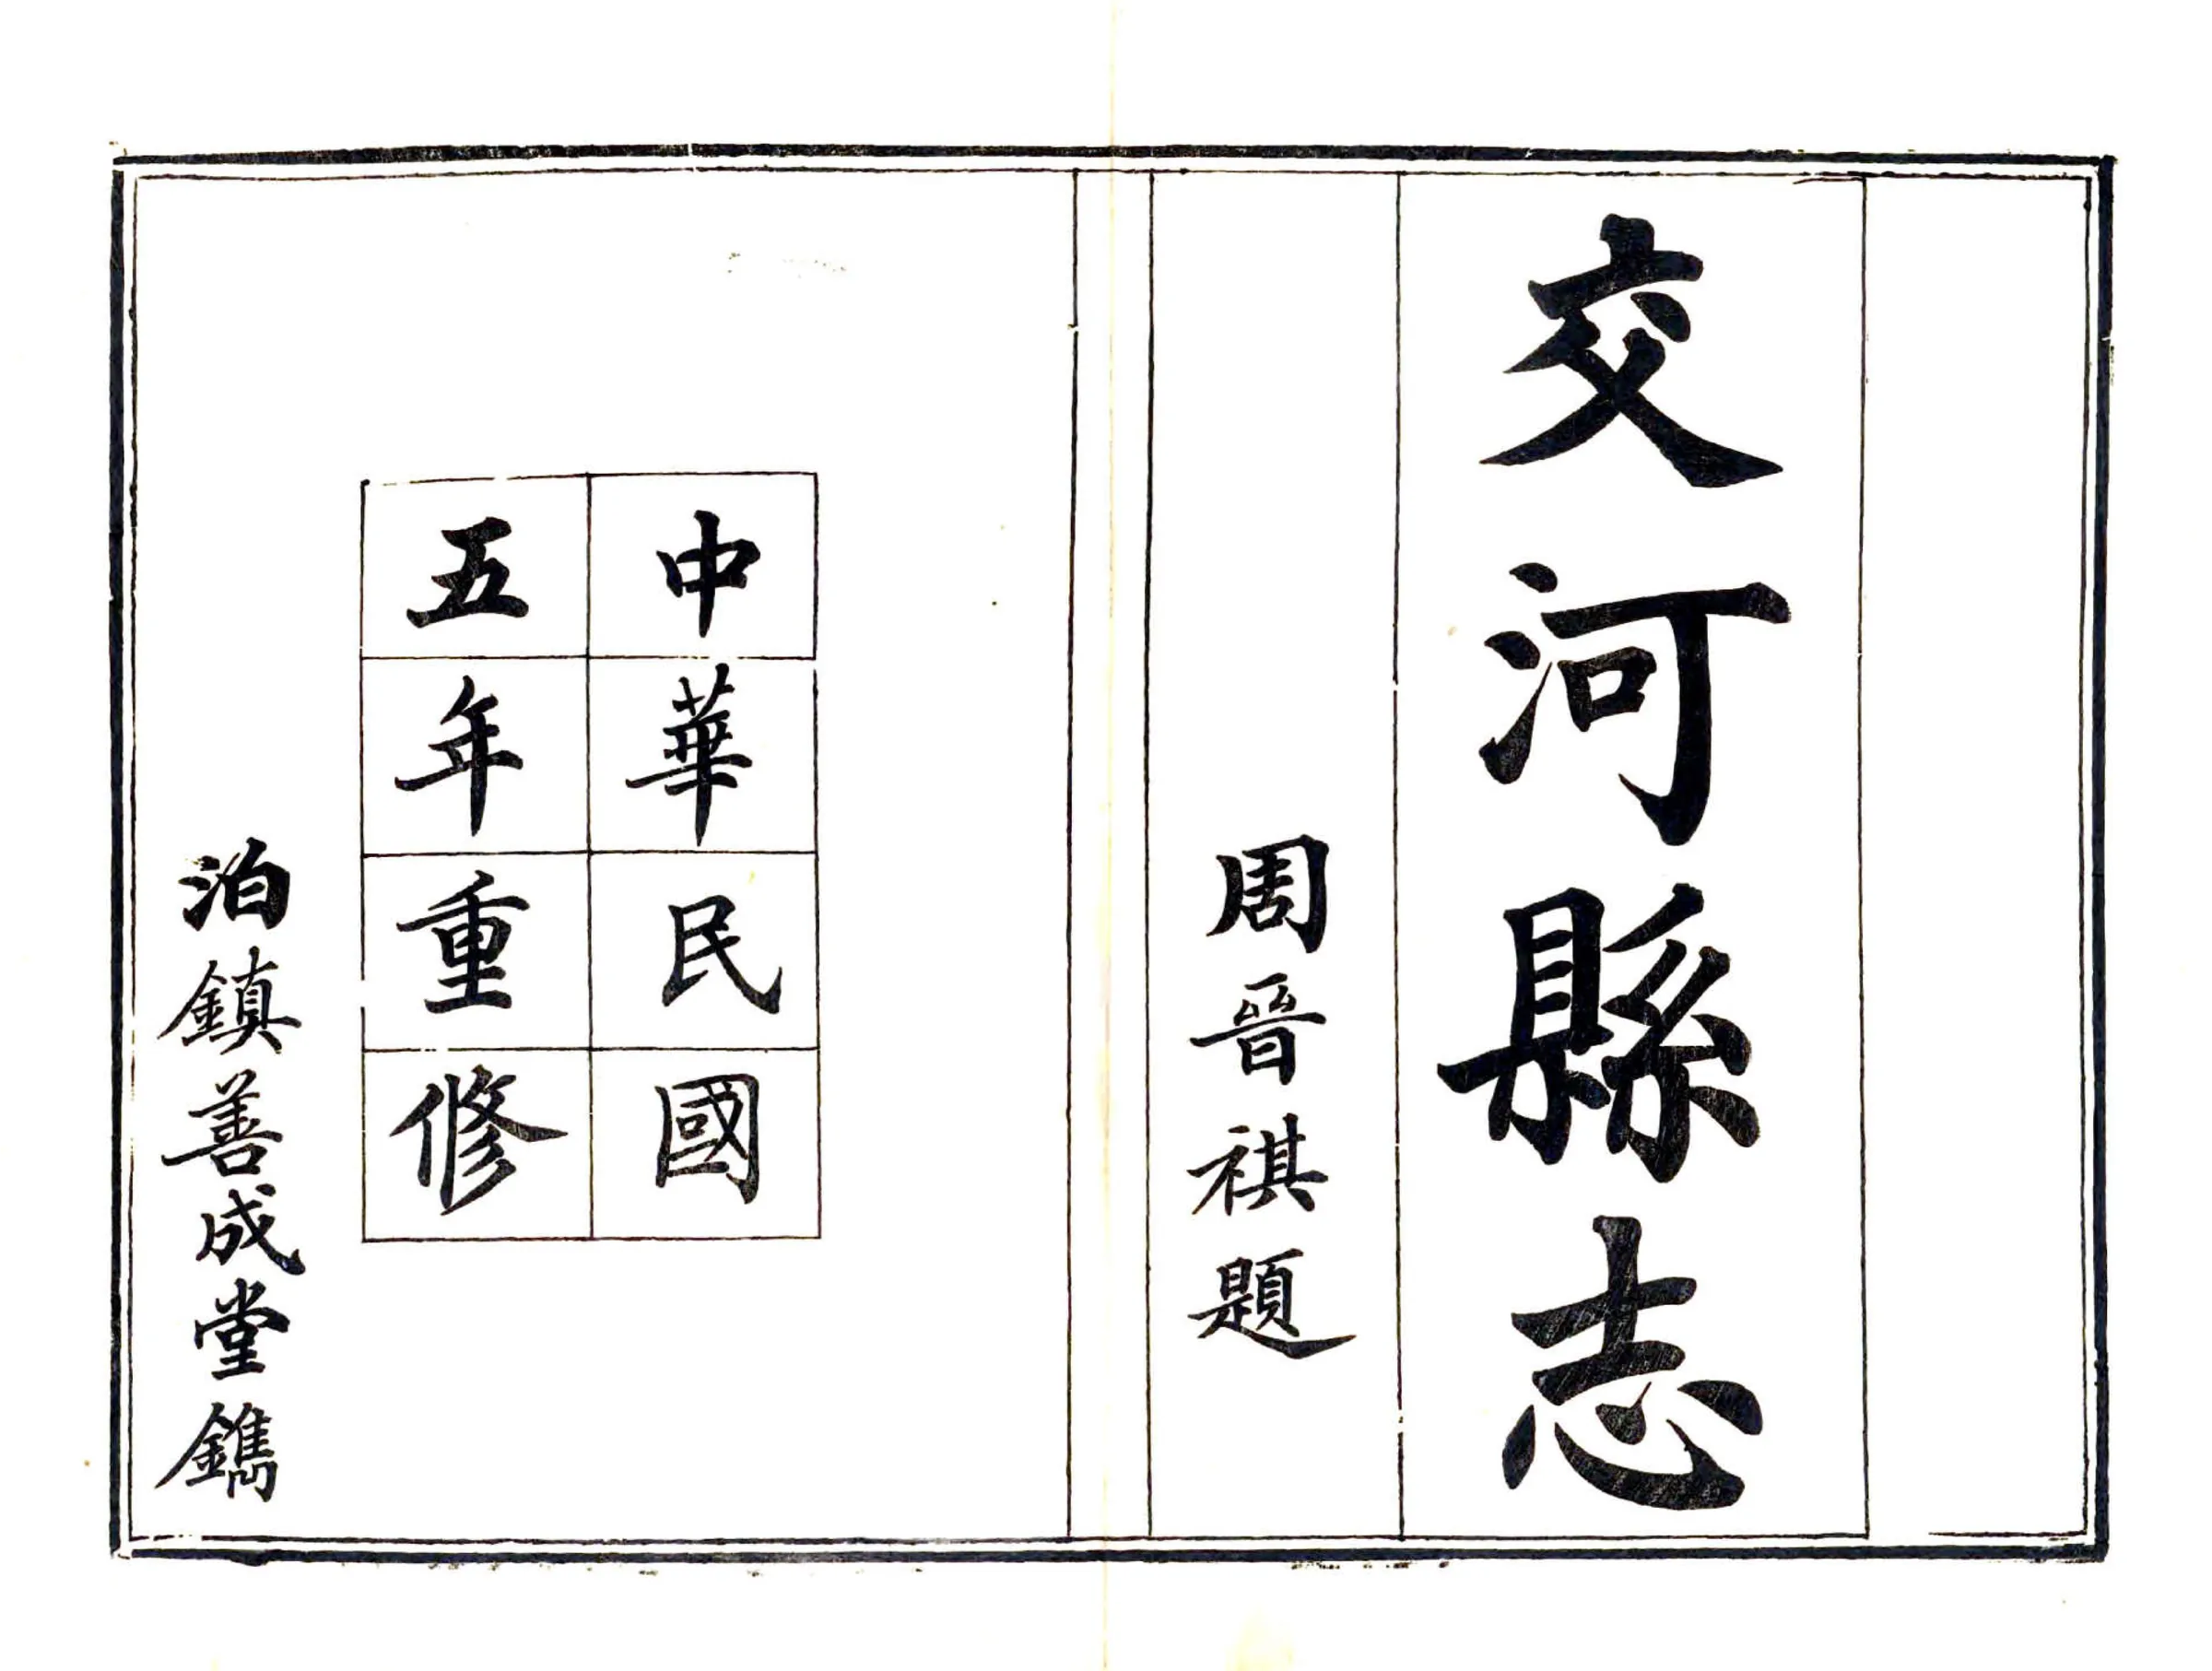 交河縣志
周晉祺題
中華民國
五年重修
泊鎮善成堂鐫